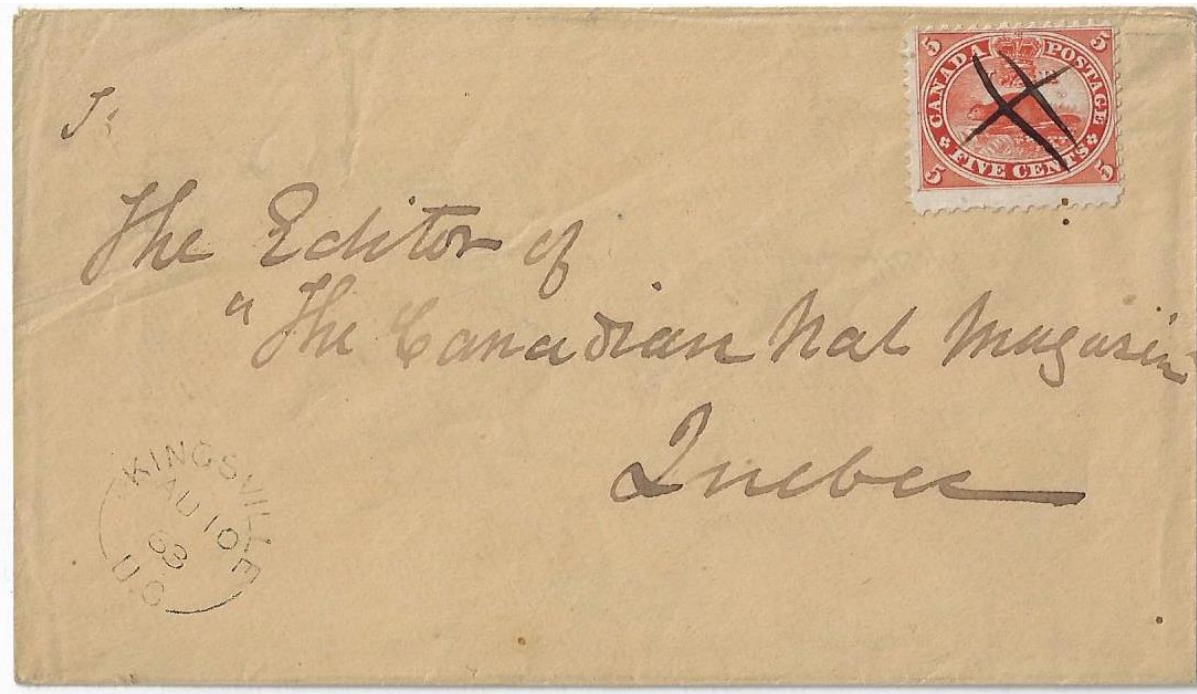 5 CANADA POSTAGE 5
5 FIVE CENTS 5
To
The Editor of
"The Canadian Nat Magazin
Quebec
KINGSVILLE
AU 10
63
U.C